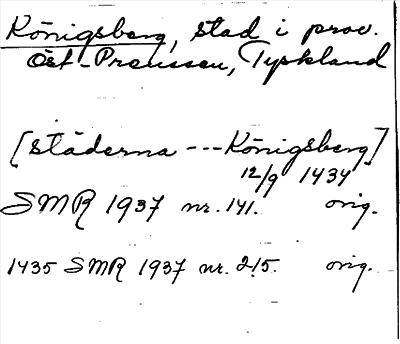 Königsberg, stad i prov.
Öst-Preussen, Tyskland
[städerna --- Königsberg]
12/9 1434
SMR 1937 nr. 141. orig.
1435 SMR 1937 nr. 215. orig.